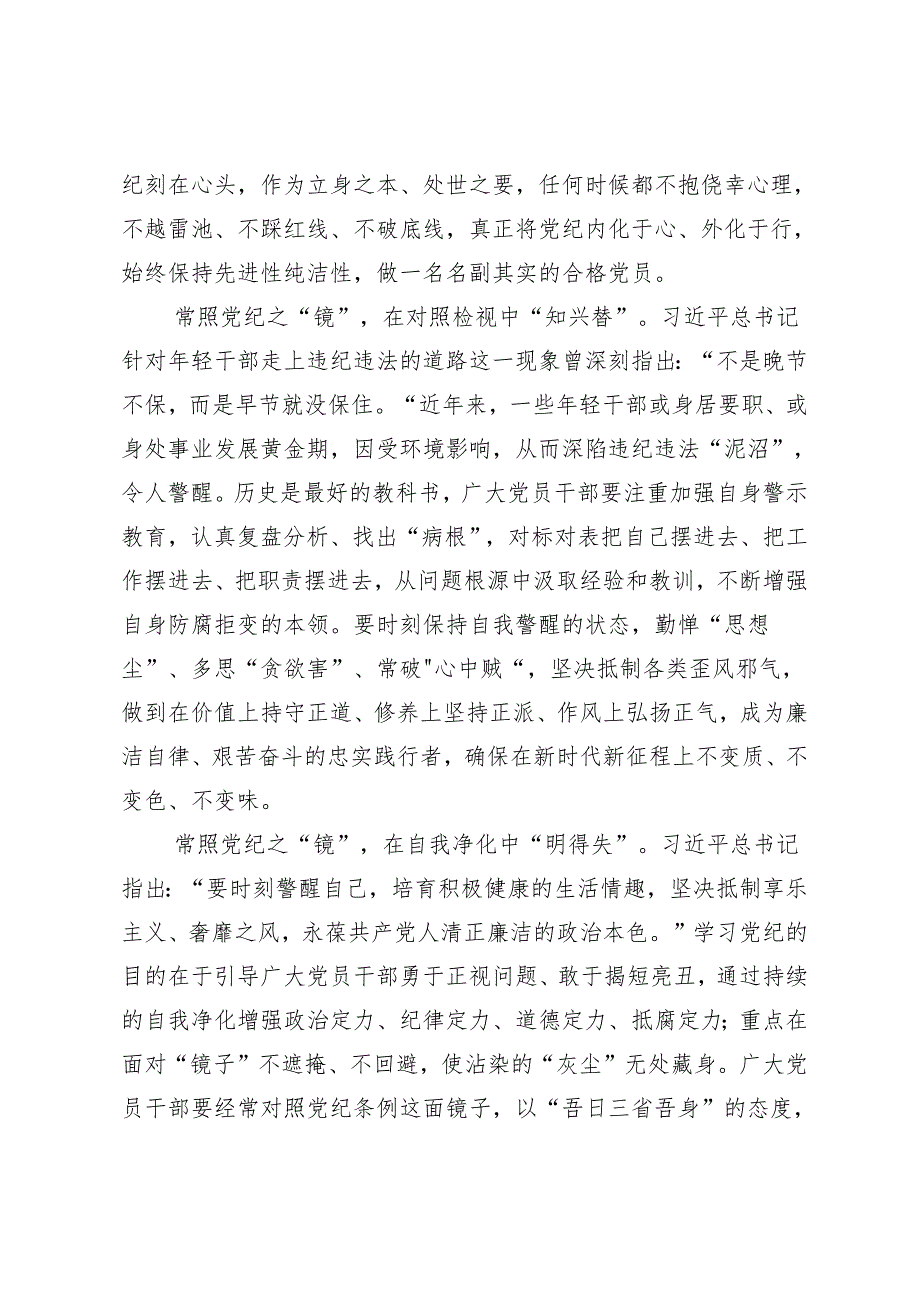 纪刻在心头，作为立身之本、处世之要，任何时候都不抱侥幸心理，
不越雷池、不踩红线、不破底线，真正将党纪内化于心、外化于行，
始终保持先进性纯洁性，做一名名副其实的合格党员。
常照党纪之“镜”，在对照检视中“知兴替”。习近平总书记
针对年轻干部走上违纪违法的道路这一现象曾深刻指出：“不是晚节
不保，而是早节就没保住。“近年来，一些年轻干部或身居要职、或
身处事业发展黄金期，因受环境影响，从而深陷违纪违法“泥沼”，
令人警醒。历史是最好的教科书，广大党员干部要注重加强自身警示
教育，认真复盘分析、找出“病根”，对标对表把自己摆进去、把工
作摆进去、把职责摆进去，从问题根源中汲取经验和教训，不断增强
自身防腐拒变的本领。要时刻保持自我警醒的状态，勤惮“思想
尘”、多思“贪欲害”、常破"心中贼“，坚决抵制各类歪风邪气，
做到在价值上持守正道、修养上坚持正派、作风上弘扬正气，成为廉
洁自律、艰苦奋斗的忠实践行者，确保在新时代新征程上不变质、不
变色、不变味。
常照党纪之“镜”，在自我净化中“明得失”。习近平总书记
指出：“要时刻警醒自己，培育积极健康的生活情趣，坚决抵制享乐
主义、奢靡之风，永葆共产党人清正廉洁的政治本色。”学习党纪的
目的在于引导广大党员干部勇于正视问题、敢于揭短亮丑，通过持续
的自我净化增强政治定力、纪律定力、道德定力、抵腐定力；重点在
面对“镜子”不遮掩、不回避，使沾染的“灰尘”无处藏身。广大党
员干部要经常对照党纪条例这面镜子，以“吾日三省吾身”的态度，